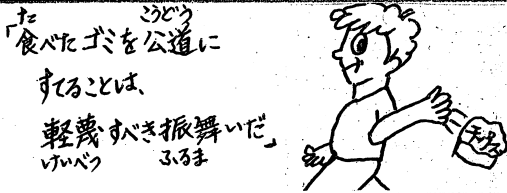 「食べたゴミを公道に
すてることは、
軽蔑すべき振舞いだ」
た
こうどう
けいべつ
ふるま